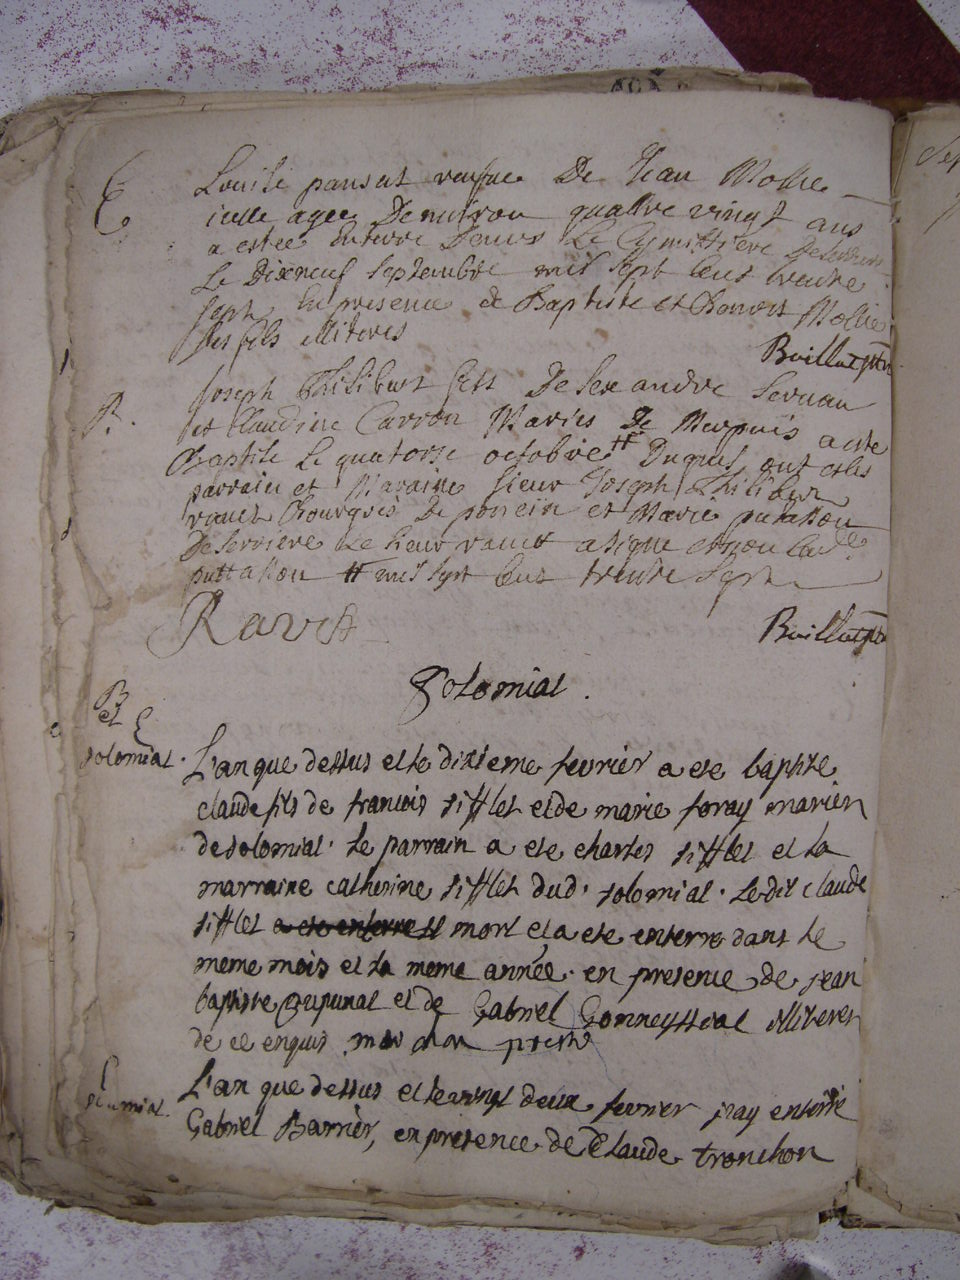 E
Louise pansut veufue De Jean Mollie
icelle agee Denuiron quattre vingt ans
a estée Enterre Deuers Le Cymittiere
Le Dixneuf septembre mil sept Cent trente
sept En presence de Baptiste et Benoit Mollie
ses fils illiteres
Buillat
B.
Joseph Philibert fils De
et Claudine Carron Mariés De a este
Baptise Le quatorse octobre # Duquel ont estes
parrain et Maraine sieur Joseph Philibert
ravet Bourgois De poncin et Marie putasson
De Serriere Le sieur ravet a signe et non lad
puttasson # mil sept Cent trente sept
Ravet
Buillat
Solomiat.
B
et E
solomiat.
L'an que dessus et le dixieme fevrier a ete baptise
claude fils de francois sifflet et de marie foray mariér
de solomiat. Le parrain a ete charles sifflet et la
marraine catherine sifflet dud. solomiat. Ledit claude
sifflet a ete enterre mort et a ete enterre dans le
meme mois et la meme année. en presence de jean
baptiste Dupunat et de Gabriel illiterer
de ce enquis
E
solomiat.
L'an que dessus et le vingt deux fevrier jay enterré
Gabriel Barrier, en presence de Claude tronchon